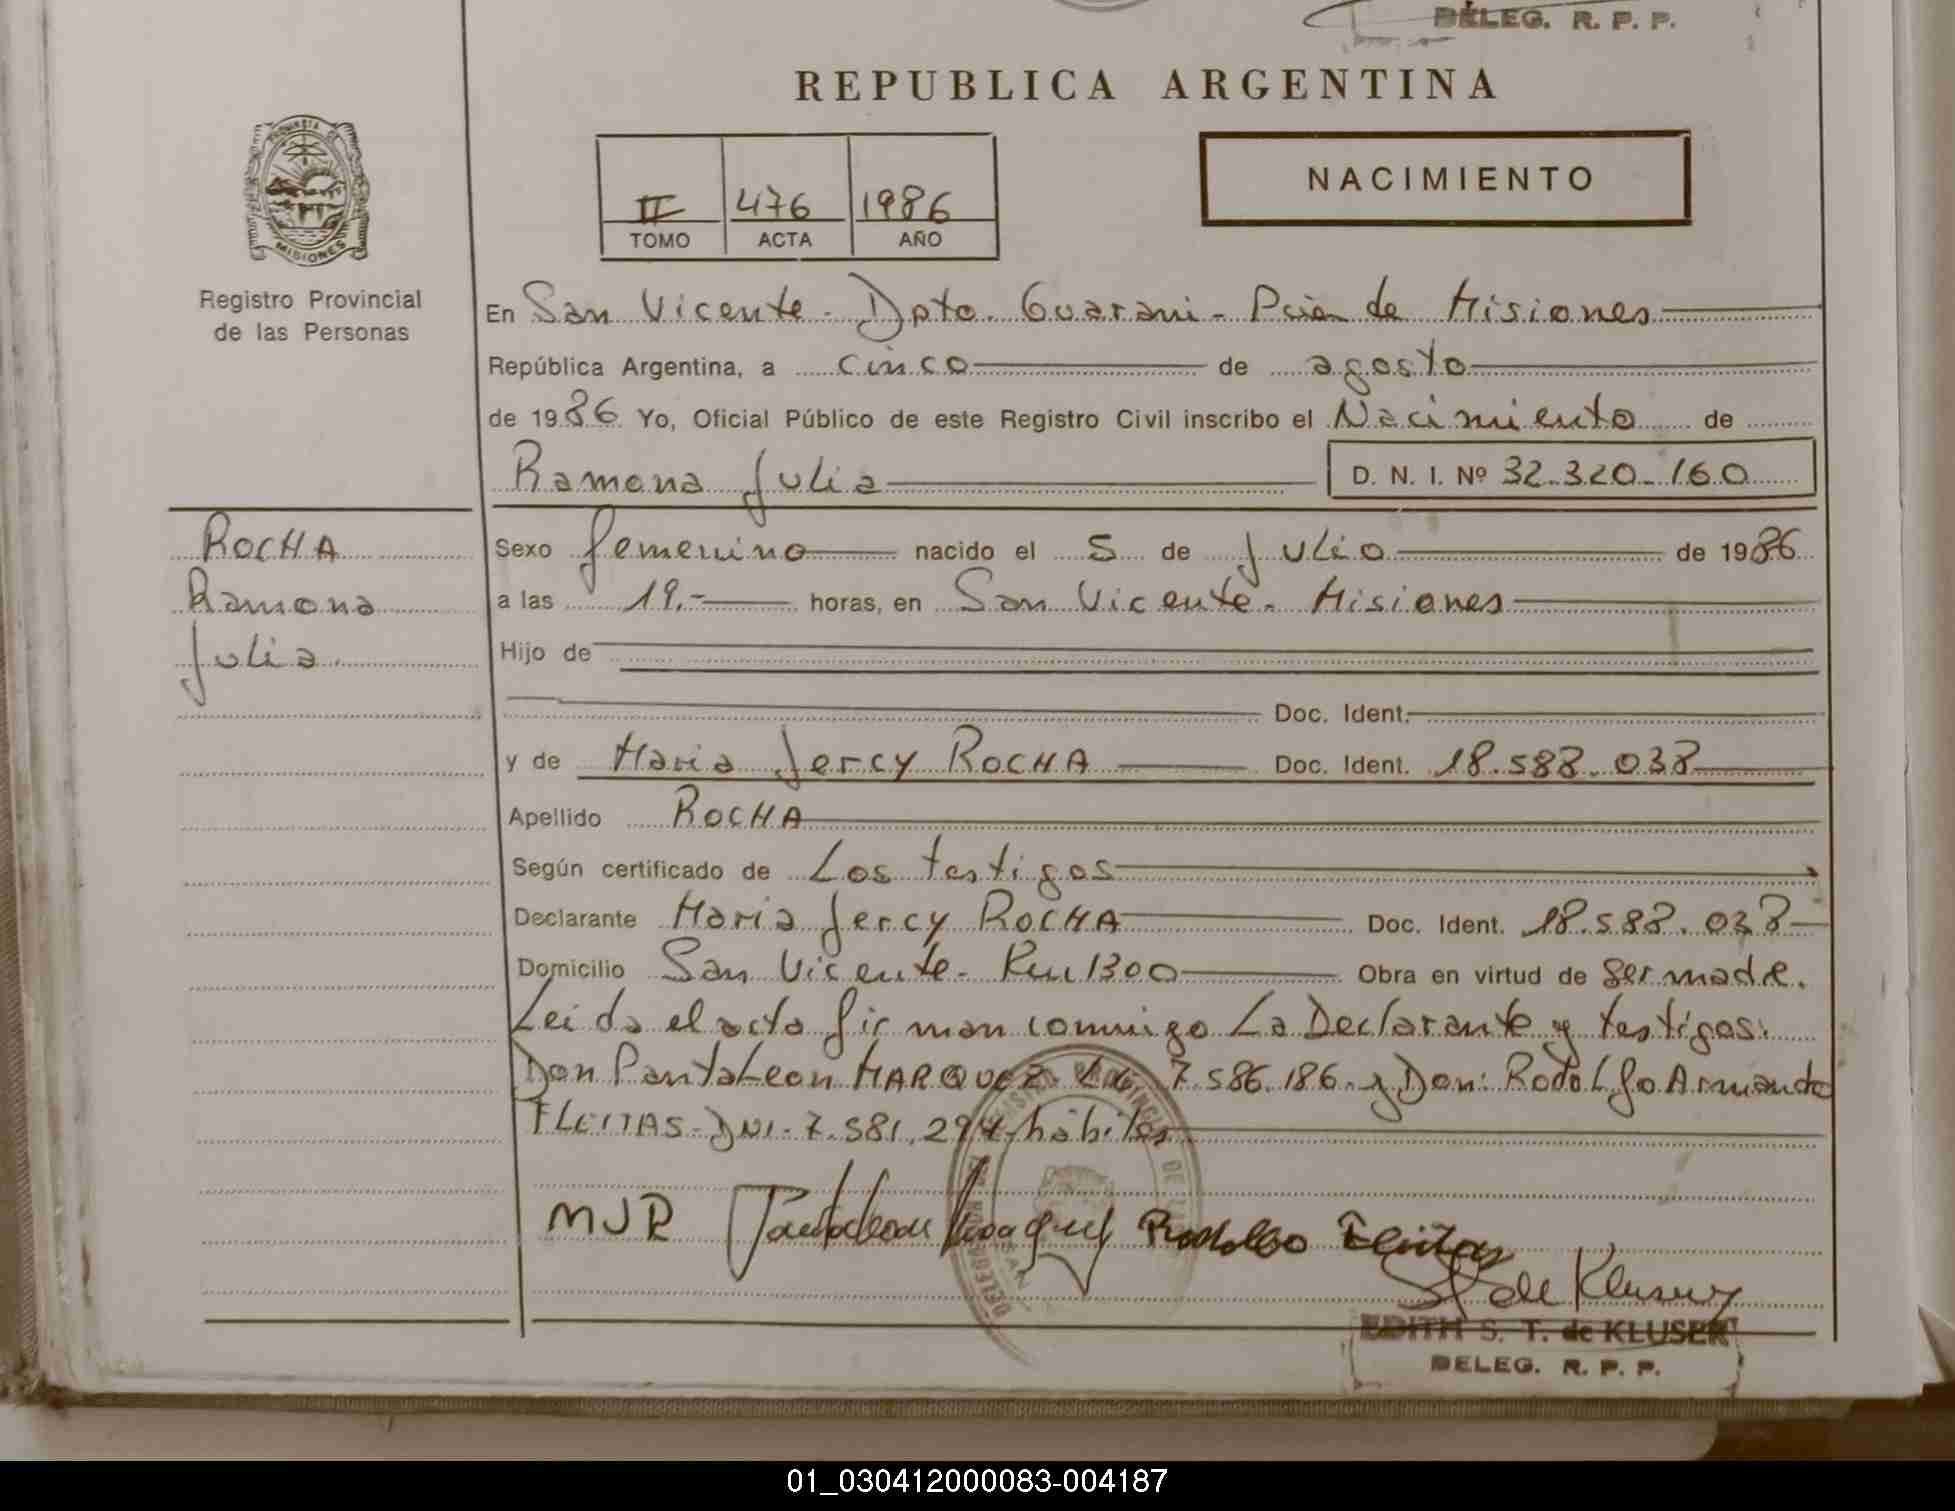 DELEG. R. P. P.
REPUBLICA ARGENTINA
PROVINCIA DE
MISIONES
NACIMIENTO
II 476 1986
TOMO ACTA AÑO
Registro Provincial
de las Personas
En San Vicente - Dpto. Guarani - Pcia de Misiones
República Argentina, a cinco de agosto
de 1986 Yo, Oficial Público de este Registro Civil inscribo el Nacimiento de
Ramona Julia D. N. I. Nº 32.320.160
ROCHA
Ramona
Julia.
Sexo femenino nacido el 5 de Julio de 1986
a las 19.- horas, en San Vicente - Misiones
Hijo de
Doc. Ident.
y de Maria Jercy ROCHA Doc. Ident. 18.588.038
Apellido ROCHA
Según certificado de Los testigos
Declarante Maria Jercy ROCHA Doc. Ident. 18.588.038
Domicilio San Vicente - Km 1300 Obra en virtud de ser madre.
Leida el acta firman conmigo La Declarante y testigos:
Don Pantaleon MARQUEZ 7.586.186 y Don: Rodolfo Armando
FLEITAS - DNI - 7.581.294 - hábiles
MJR Pantaleon Rodolfo Fleitas
de Kluser
EDITH S. T. de KLUSER
DELEG. R. P. P.
01_030412000083-004187